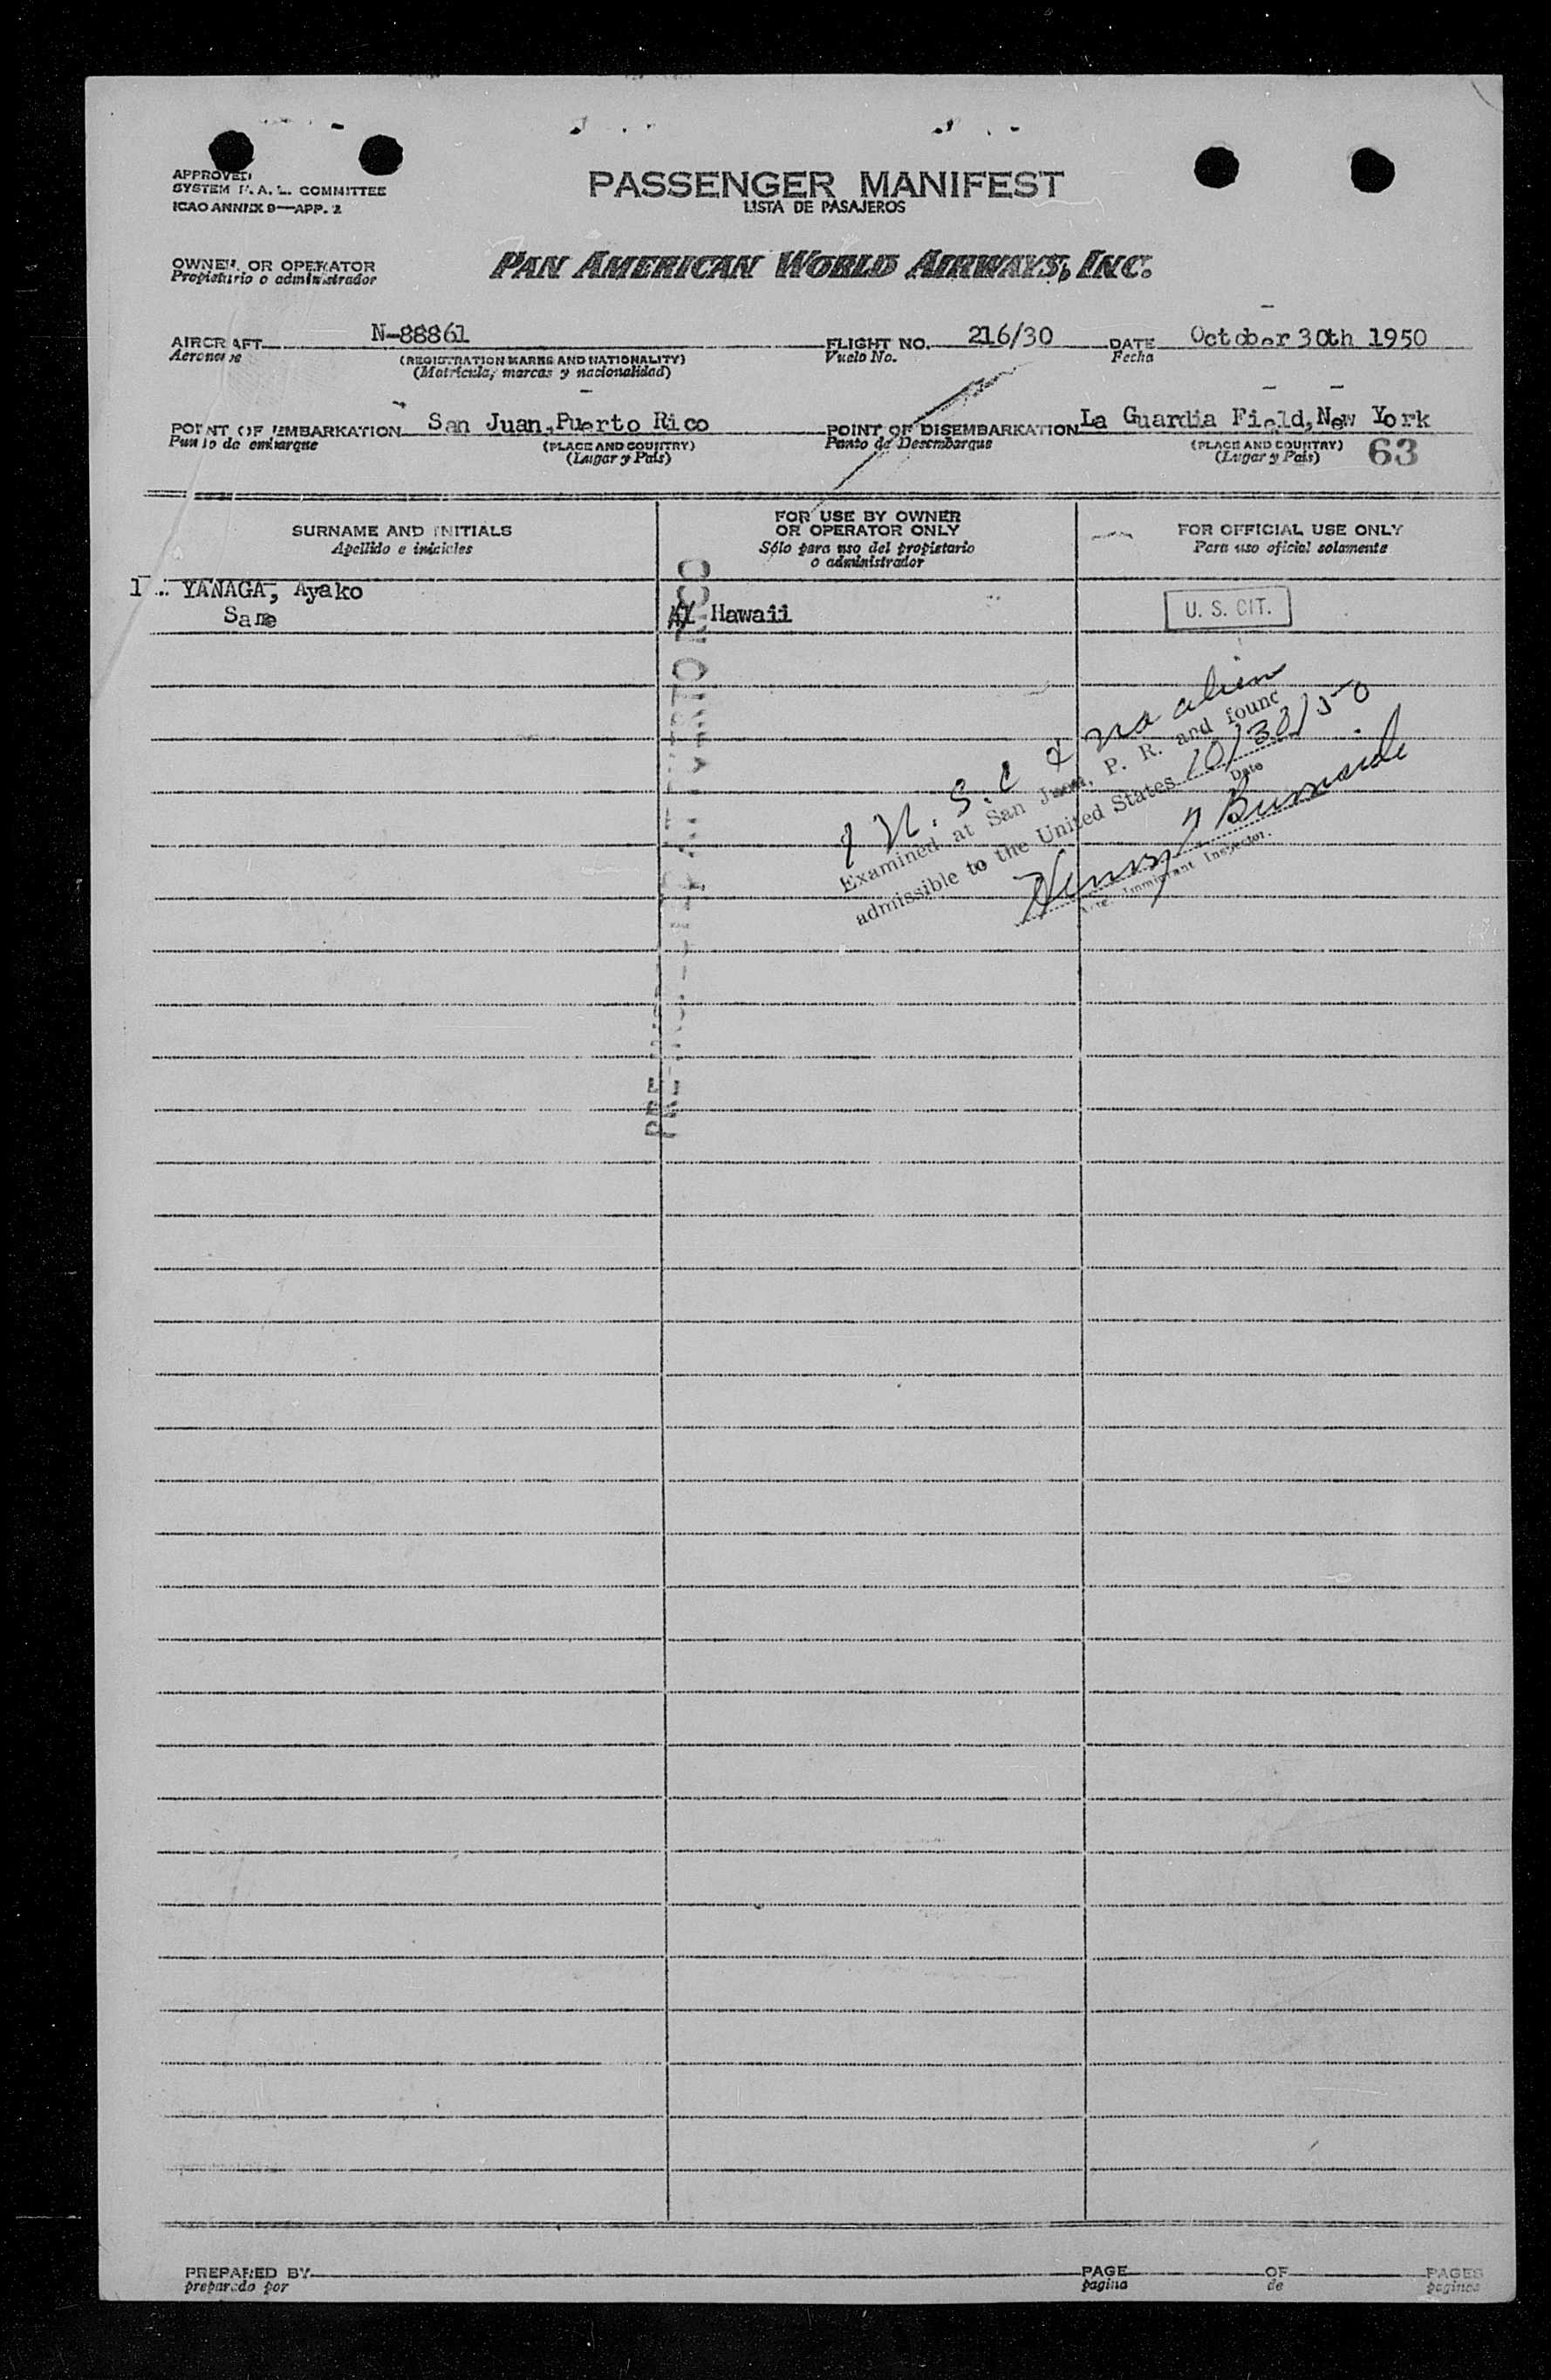 APPROVED
SYSTEM F. A. L. COMMITTEE
ICAO ANNEX 9—APP. 2
PASSENGER MANIFEST
LISTA DE PASAJEROS
OWNER OR OPERATOR
Propietario o administrador
PAN AMERICAN WORLD AIRWAYS, INC.
AIRCRAFT N-88861 FLIGHT NO. 216/30 DATE October 30th 1950
Aeronave (REGISTRATION MARKS AND NATIONALITY) Vuelo No. Fecha
(Matricula, marcas y nacionalidad)
POINT OF EMBARKATION San Juan, Puerto Rico POINT OF DISEMBARKATION La Guardia Field, New York
Punto de embarque (PLACE AND COUNTRY) Punto de Desembarque (PLACE AND COUNTRY) 63
(Lugar y Pais) (Lugar y Pais)
SURNAME AND INITIALS FOR USE BY OWNER OR OPERATOR ONLY FOR OFFICIAL USE ONLY
Apellido e iniciales Sólo para uso del propietario o administrador Para uso oficial solamente
1 .. YANAGA, Ayako
Same Hawaii U. S. CIT.
1 U.S.C & no alien
Examined at San Juan, P. R. and found
admissible to the United States 10/30/50
Date
Henry Burnside
Immigrant Inspector.
PREPARED BY PAGE OF PAGES
preparado por pagina de paginas